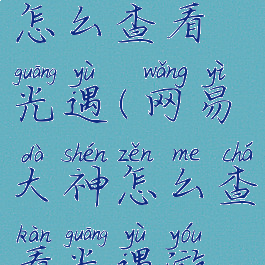 怎么查看
guāng yù wǎng yì
光遇(网易
dà shén zěn me chá
大神怎么查
kàn guāng yù yóu
看光遇游